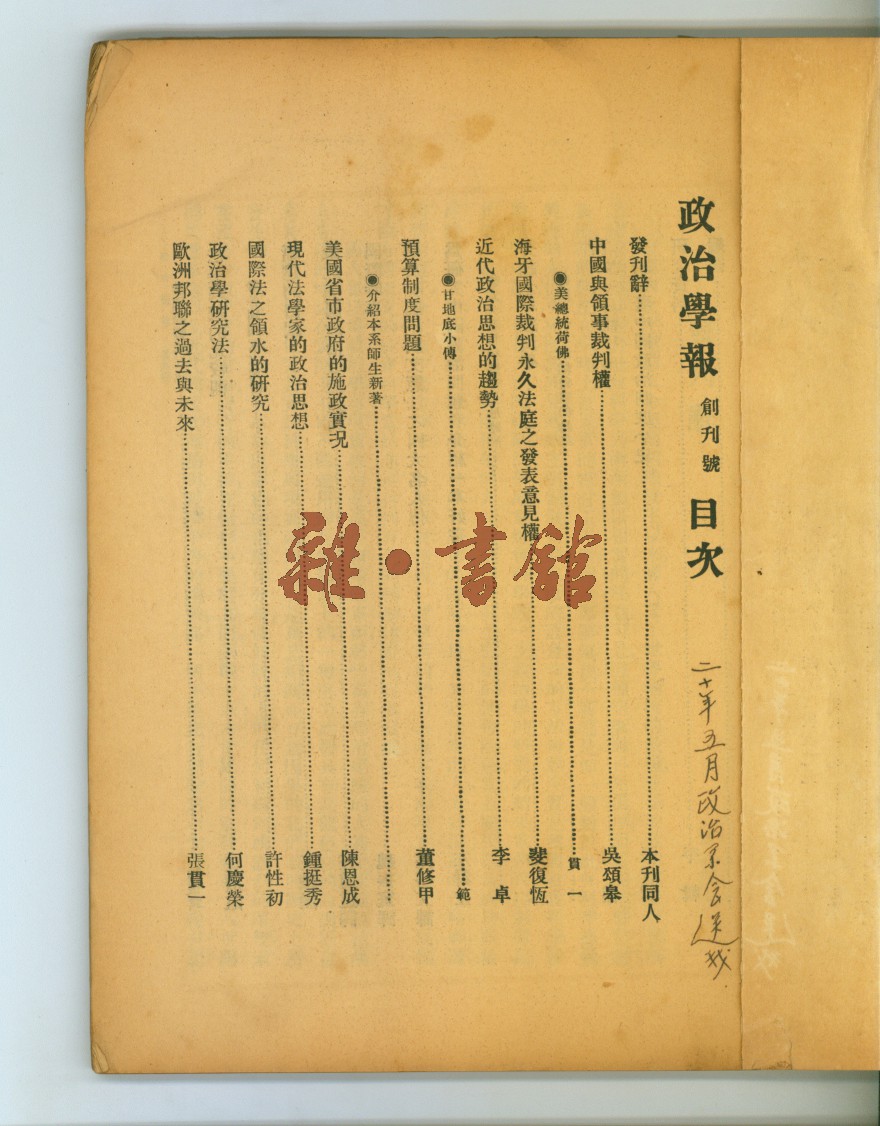 政治學報 創刊號 目次
二十年五月政治系會送我
發刊辭 本刊同人
中國與領事裁判權 吳頌皋
◉美總統荷佛 貫一
海牙國際裁判永久法庭之發表意見權 婁復恆
近代政治思想的趨勢 李卓
◉甘地底小傳 範
預算制度問題 董修甲
◉介紹本系師生新著
美國省市政府的施政實況 陳恩成
現代法學家的政治思想 鍾挺秀
國際法之領水的研究 許性初
政治學研究法 何慶榮
歐洲邦聯之過去與未來 張貫一
雜·書館